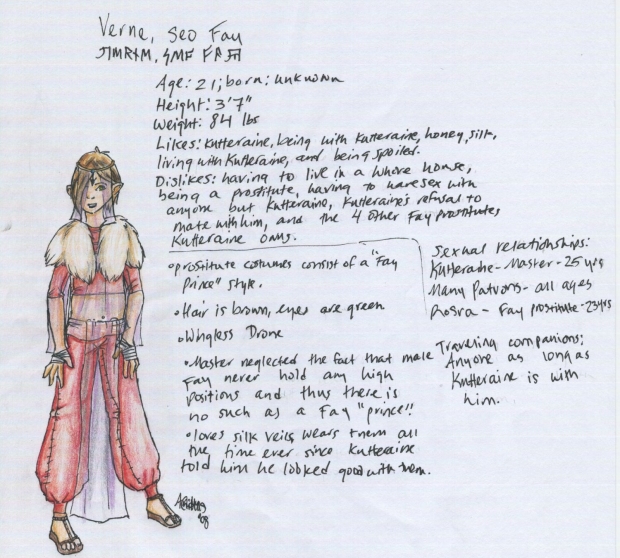 Verne, Seo Fay
Age: 21; born: unknown
Height: 3'7"
Weight: 84 lbs
Likes: Kutteraine, being with Kutteraine, honey, silk,
living with Kutteraine, and being spoiled.
Dislikes: having to live in a whore house,
being a prostitute, having to have sex with
anyone but Kutteraine, Kutteraine's refusal to
mate with him, and the 4 other Fay prostitutes
Kutteraine owns.
•prostitute costumes consist of a "Fay
Prince" style.
•Hair is brown, eyes are green
•Wingless Drone
•Master neglected the fact that male
Fay never hold any high
positions and thus there is
no such as a Fay "prince"!
•loves silk veils wears them all
the time ever since Kutteraine
told him he looked good with them.
Sexual relationships:
Kutteraine-Master-25 yrs
Many Patrons- all ages
Rosra - Fay prostitute-23yrs
Traveling companions:
Anyone as long as
Kutteraine is with
him.
'08